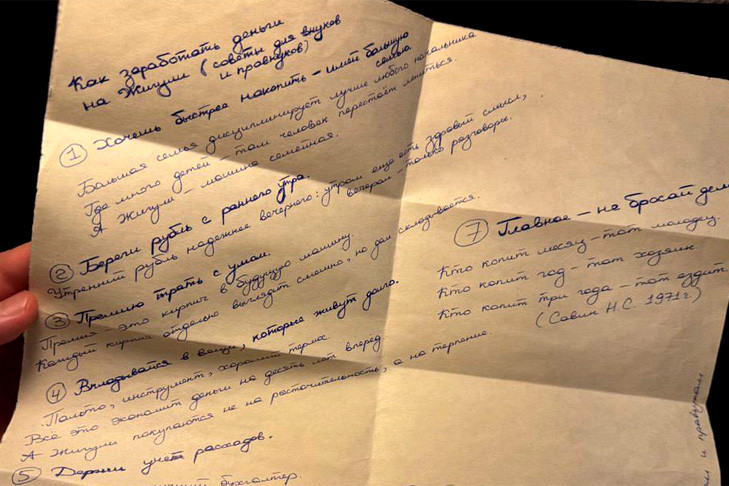 Как заработать деньги
на Жигули (советы для внуков
и правнуков)
① Хочешь быстрее накопить – имей большую
семью
Большая семья дисциплинирует лучше любого начальника
Где много детей – там человек перестаёт лениться.
А Жигули – машина семейная.
② Береги рубль с раннего утра.
Утренний рубль надежнее вечернего: утром еще есть здравый смысл,
вечером – только разговоры.
③ Премию трать с умом.
Премия – это кирпич в будущую машину.
Каждый кирпич отдельно выглядит смешно, но дом складывается.
④ Вкладывайся в вещи, которые живут долго.
Пальто, инструмент, хороший термос.
Все это экономит деньги на десять лет вперёд.
А Жигули покупаются не на расточительность, а на терпение.
⑤ Держи учет расходов.
бухгалтер.
⑦ Главное – не бросай
Кто копит месяц – тот молодец.
Кто копит год – тот хозяин
Кто копит три года – тот ездит.
(Савин Н.С. 1971г)
и правнукам